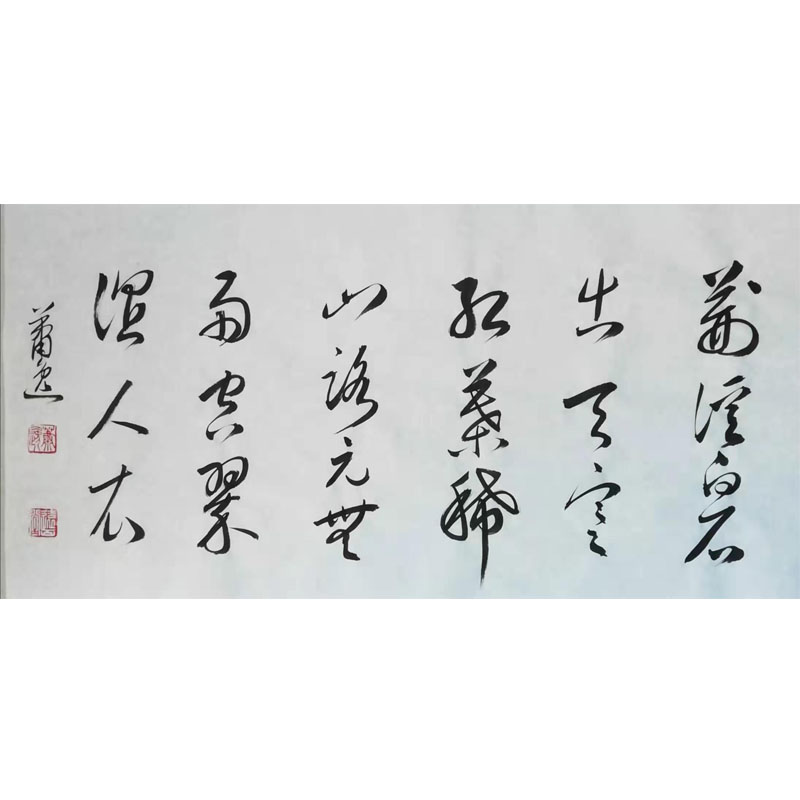 荊溪白石
出天寒
紅葉稀
山路元無
雨空翠
濕人衣
蕭逸